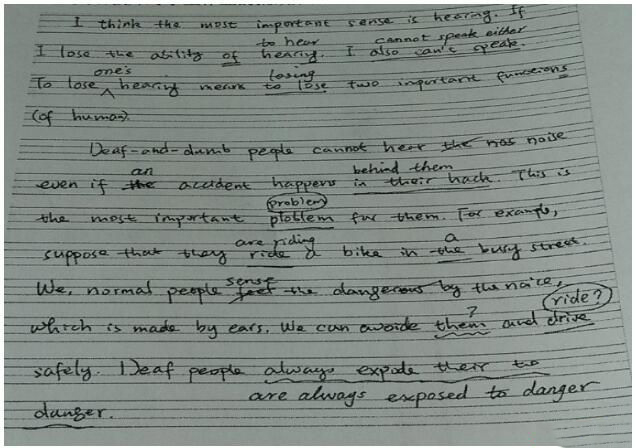 I think the most important sense is hearing. If
to hear cannot speak either
I lose the ability of hearing. I also can't speak.
one's losing
To lose hearing means to lose two important functions
(of human).
Deaf-and-dumb people cannot hear the nos noise
an behind them
even if the accident happens in their back. This is
problem
the most important ploblem for them. For example,
are riding a
suppose that they ride a bike in the busy street.
sense
We, normal people feel the dangerous by the noice,
? ride?
which is made by ears. We can avoide them and drive
safely. Deaf people always expode their to
are always exposed to danger
danger.